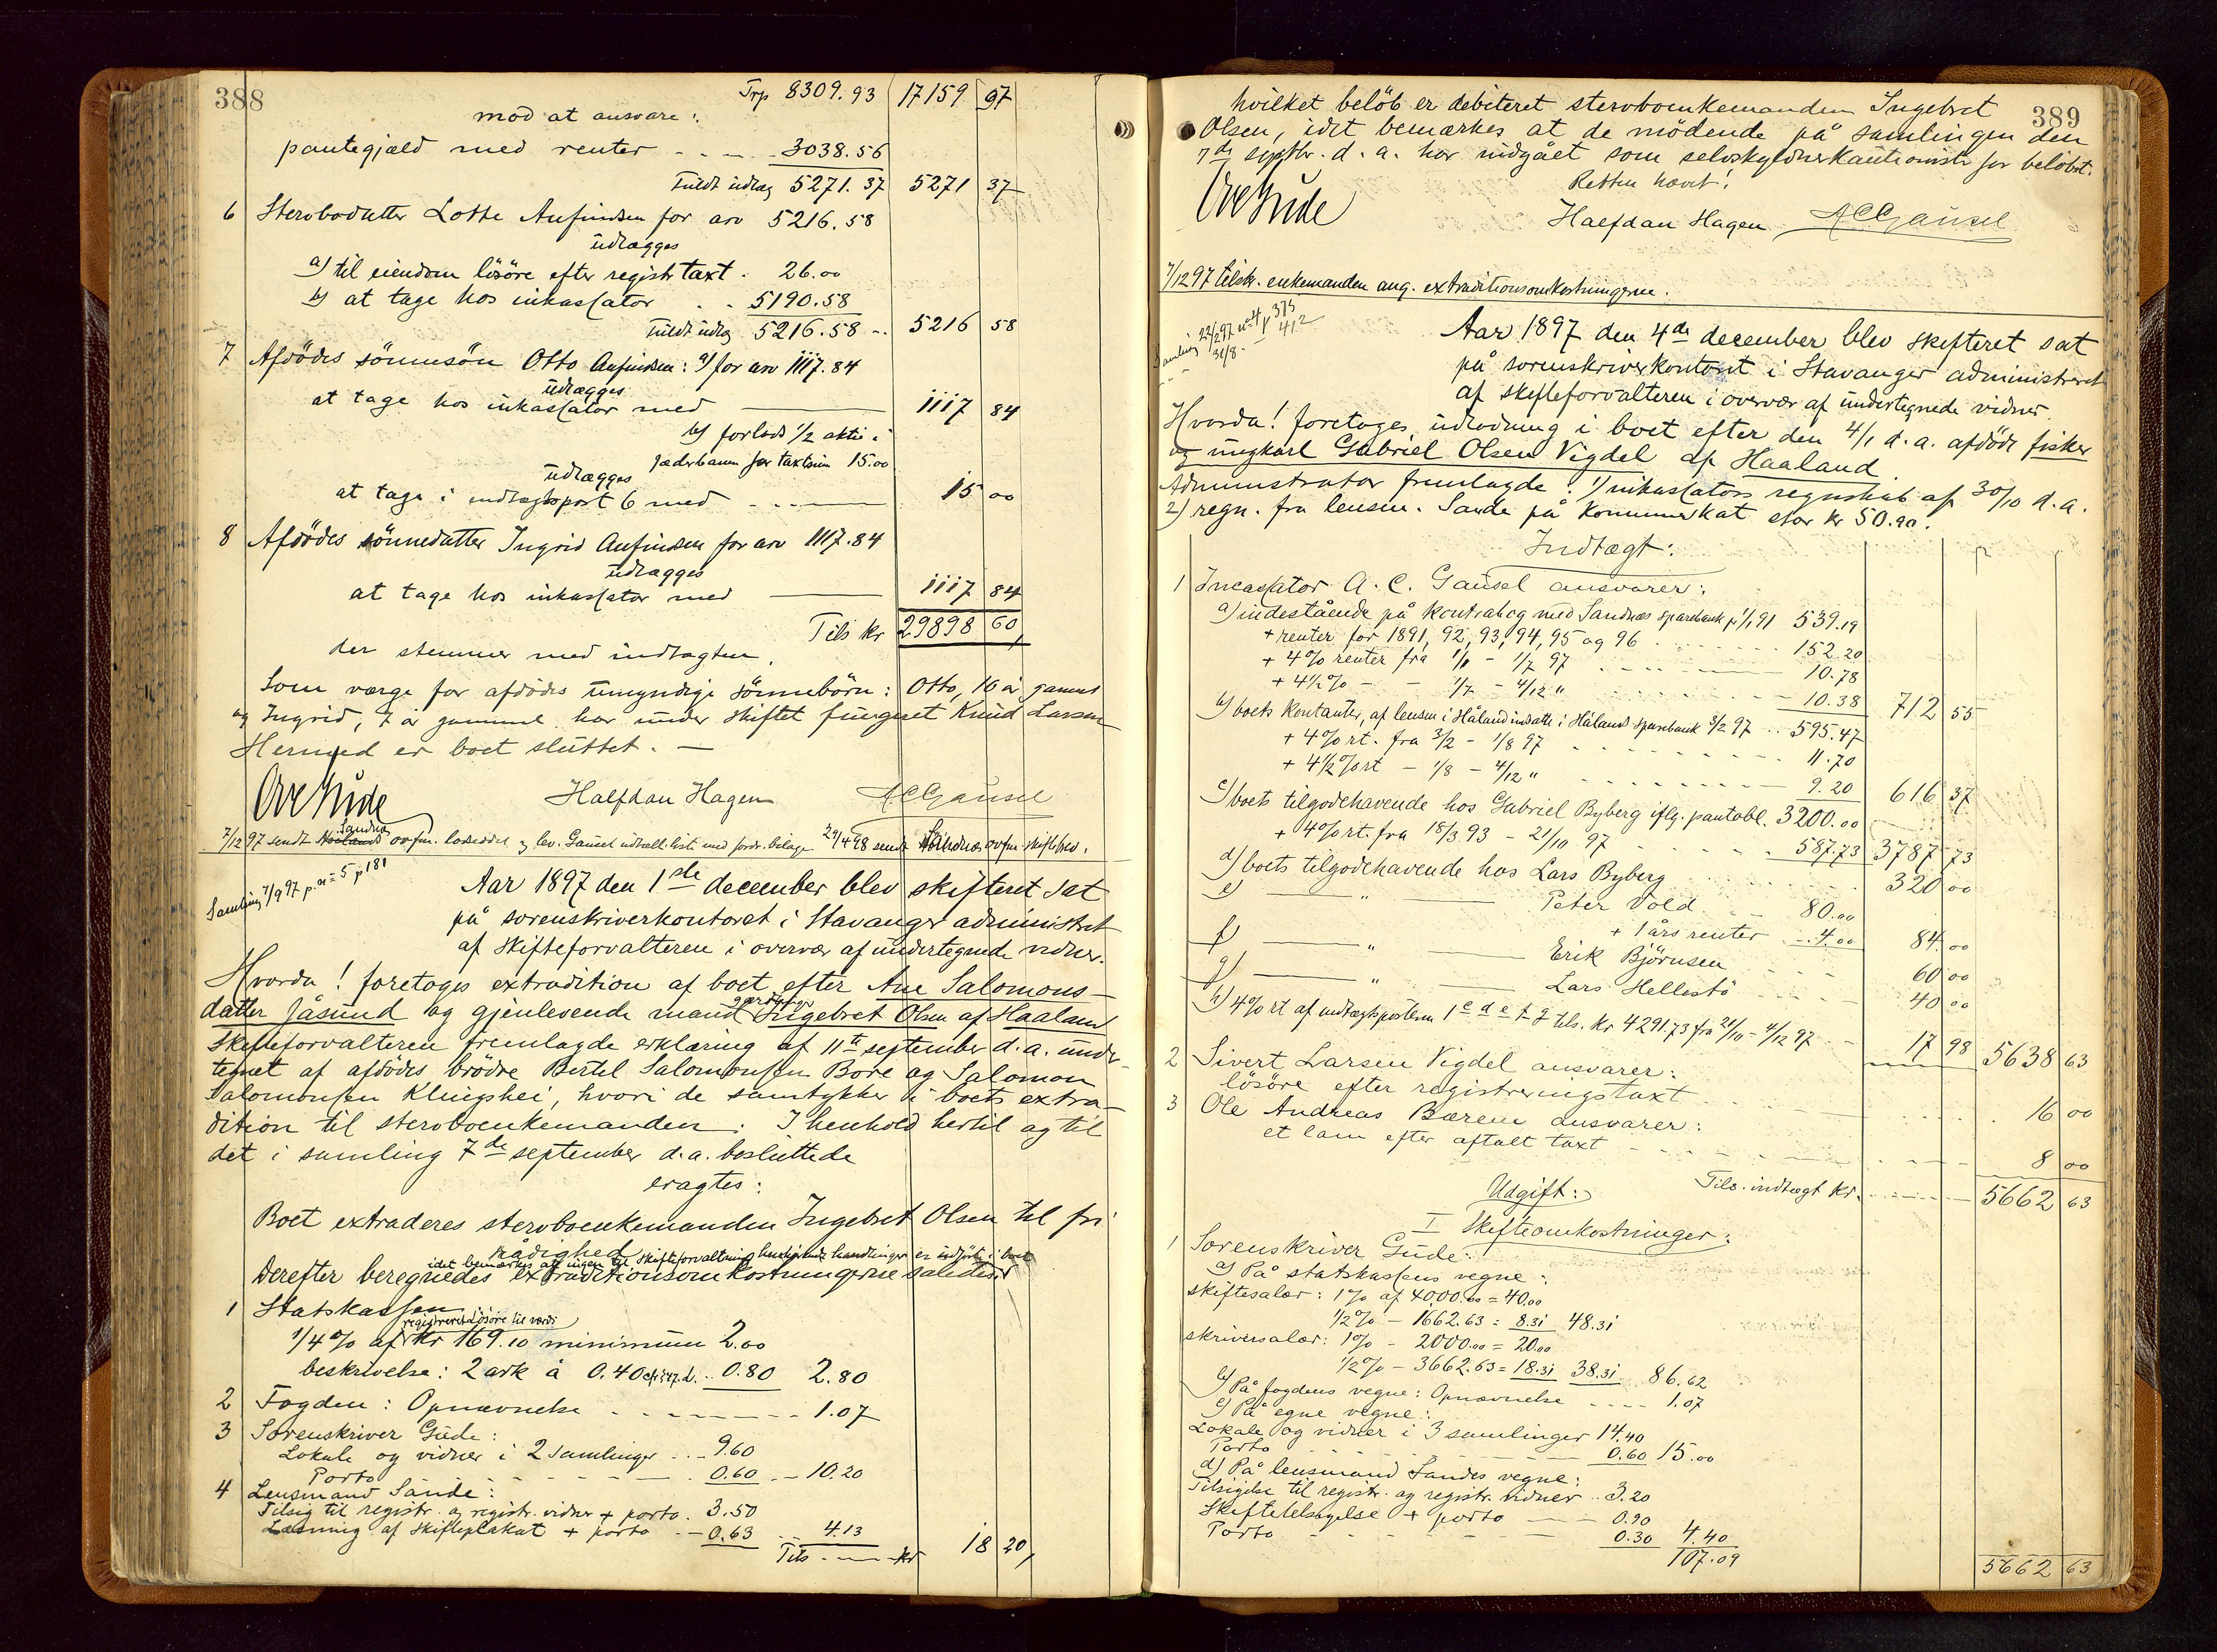 388
Trp 8309.93 17159 97
mod at ansvare:
pantegjæld med renter - - - 3038.56
Fuldt udlæg 5271.37 5271 37
6 Stervbodatter Lotte Anfindsen for arv 5216.58
udlægges
a) til eiendom lösöre efter registr taxt. 26.00
b) at tage hos inkassator . . 5190.58
Fuldt udlæg 5216.58 -. 5216 58
7 Afdödes sönnesön Otto Anfindsen: a) for arv 1117.84
udlægges
at tage hos inkassator med 1117 84
b) forlods 1/2 aktie i
Jæderbanen for taxtsum 15.00
udlægges
at tage i indtægtspost 6 med - - - 15 00
8 Afdödes sönnedatter Ingrid Anfindsen for arv 1117.84
udlægges
at tage hos inkassator med 1117 84
Tils kr 29898 60
der stemmer med indtægten.
Som værge for afdödes umyndige sönnebörn: Otto, 16 år gammel
og Ingrid, 7 år gammel har under skiftet fungeret Knud Larsen
Hermed er boet sluttet. —
Ove Gude Halfdan Hagen ACGausel
Sandnæs
7/12 97 sendt Hölands ovfm. lodseddel og lev. Gausel udtall.list med fordr. bilage 29/4 98 sendt ovfm. skiftebrev.
Samling 7/9 97 p. n=5 p 181
Aar 1897 den 1ste december blev skifteret sat
på sorenskriverkontoret i Stavanger administret
af skifteforvalteren i overvær af undertegnede vidner.
Hvorda! foretoges extradition af boet efter Ane Salomons-
datter Jåsund og gjenlevende mand gårdbruger Ingebret Olsen af Haaland
Skifteforvalteren fremlagde erklæring af 11te september d.a. under-
tegnet af afdödes brödre Bertel Salomonsen Bore og Salomon
Salomonsen Klingshei, hvori de samtykker i boets extra-
dition til stervboenkemanden. I henhold hertil og til
det i samling 7de september d.a. besluttede
eragtes:
Boet extraderes stervboenkemanden Ingebret Olsen til fri
rådighed
idet bemærkes at ingen til skifteforvaltning henhörende handlinger er udfört i boet
Derefter beregnedes extraditionsomkostningerne således:
1 Statskassen
registreret lösöre til værdi
1/4 % af kr 169.10 minimum 2.00
beskrivelse: 2 ark å 0.40 0.80 2.80
2 Fogden: Opnævnelse . - - - - - - 1.07
3 Sorenskriver Gude:
Lokale og vidner i 2 samlinger . . . 9.60
Porto - - - - - 0.60 - 10.20
4 Lensmand Sande:
Tilsig til registr. og registr. vidner + porto. 3.50
Læsning af skifteplakat + porto - - 0.63 . . 4.13
Tils - - - kr 18 20
389
hvilket belöb er debiteret stervboenkemanden Ingebret
Olsen, idet bemærkes at de mödende på samlingen den
7de septbr. d.a. har indgået som selvskyldnerkautionister for belöbet.
Retten hævet!
Ove Gude Halfdan Hagen ACGausel
7/12 97 tilskr. enkemanden ang. extraditionsomkostningerne.
Samling 22/2 97 n=4 p 373
" 31/8 - " 412
Aar 1897 den 4de december blev skifteret sat
på sorenskriverkontoret i Stavanger administreret
af skifteforvalteren i overvær af undertegnede vidner.
Hvorda! foretoges udlodning i boet efter den 4/1 d.a. afdöde fisker
og ungkarl Gabriel Olsen Vigdel af Haaland
Administrator fremlagde: 1) inkassators regnskab af 30/10 d.a.
2) regn. fra lensm. Sande på kommuneskat stor kr 50.90.
Indtægt:
1 Incassator A.C. Gausel ansvarer:
a) indestående på kontrabog med Sandnæs sparebank pr 1/1 91 539.19
+ renter for 1891, 92, 93, 94, 95 og 96 . . . . 152.20
+ 4% renter fra 1/1 - 1/7 97 . . . . 10.78
+ 4 1/2 % - - 1/7 - 4/12 " . . . . 10.38 712 55
b) boets kontanter, af lensm i Håland indsatte i Hålands sparebank 3/2 97 . . 595.47
+ 4% rt. fra 3/2 - 1/8 97 . . . . 11.70
+ 4 1/2 % rt - 1/8 - 4/12 " . . . . 9.20 616 37
c) boets tilgodehavende hos Gabriel Byberg iflg. pantobl. 3200.00
+ 4% rt. fra 18/3 93 - 21/10 97 - - - 587.73 3787 73
d) boets tilgodehavende hos Lars Byberg . . . . 320 00
e) — " — Peter Vold 80.00
+ 1 års renter - - 4.00 84 00
f) — " — Erik Björnsen - - - 60 00
g) — " — Lars Hellestö - - - 40 00
h) 4% rt af indtægtsposterne 1 c d e f g tils. kr 4291.73 fra 21/10 - 4/12 97 - 17 98 5638 63
2 Sivert Larsen Vigdel ansvarer:
lösöre efter registreringstaxt . . . . 16 00
3 Ole Andreas Bærem ansvarer:
et lam efter aftalt taxt - - - - 8 00
Tils. indtægt kr. - - - 5662 63
Udgift:
I Skifteomkostninger:
1 Sorenskriver Gude:
a) På statskassens vegne:
skiftesalær: 1% af 4000.00 = 40.00
1/2 % - 1662.63 = 8.31 48.31
skriversalær: 1% - 2000.00 = 20.00
1/2 % - 3662.63 = 18.31 38.31 86.62
b) På fogdens vegne: Opnævnelse - - - - 1.07
c) På egne vegne:
Lokale og vidner i 3 samlinger 14.40
Porto - - - - 0.60 15.00
d) På lensmand Sandes vegne:
Tilsigelse til registr. og registr. vidner . . 3.20
Skiftetilsigelse + porto - - - 0.90
Porto - - - - 0.30 4.40
107.09
5662 63